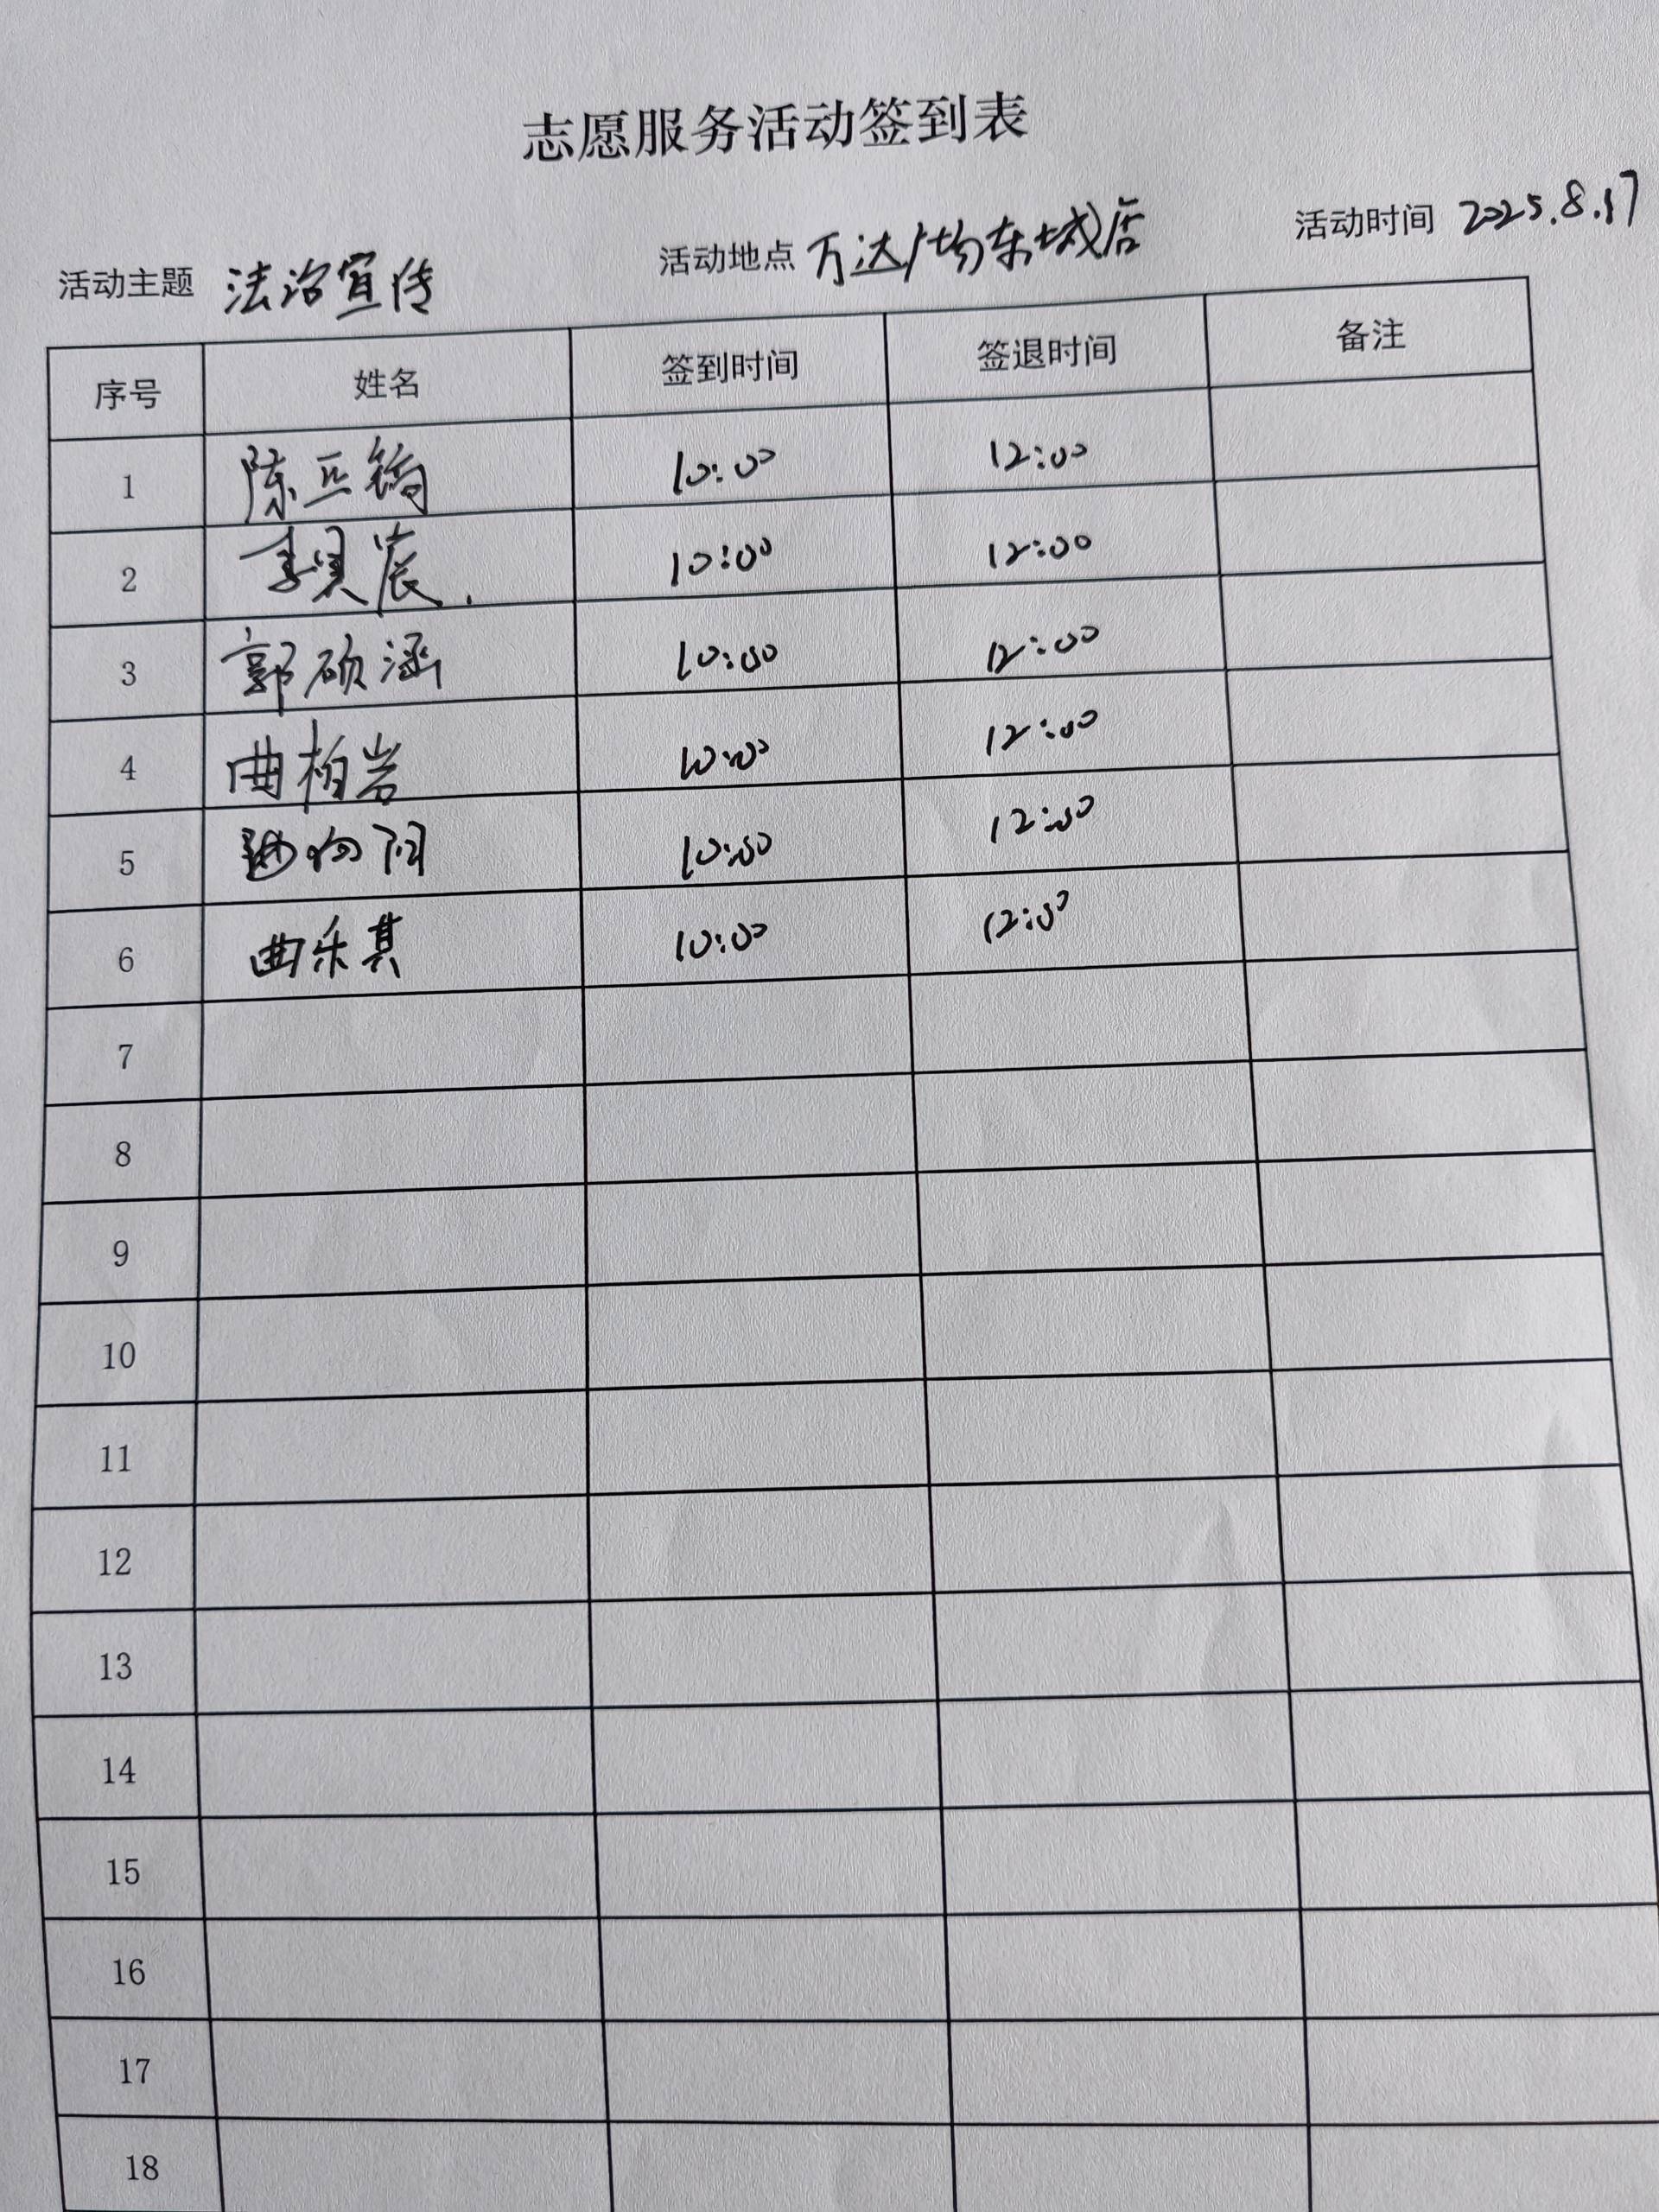 志愿服务活动签到表
活动主题 法治宣传 活动地点 万达广场东城店 活动时间 2025.8.17
序号 姓名 签到时间 签退时间 备注
1 陈 10:00 12:00
2 李昊宸. 10:00 12:00
3 郭硕涵 10:00 12:00
4 曲柏岩 10:00 12:00
5 向阳 10:00 12:00
6 曲乐其 10:00 12:00
7
8
9
10
11
12
13
14
15
16
17
18